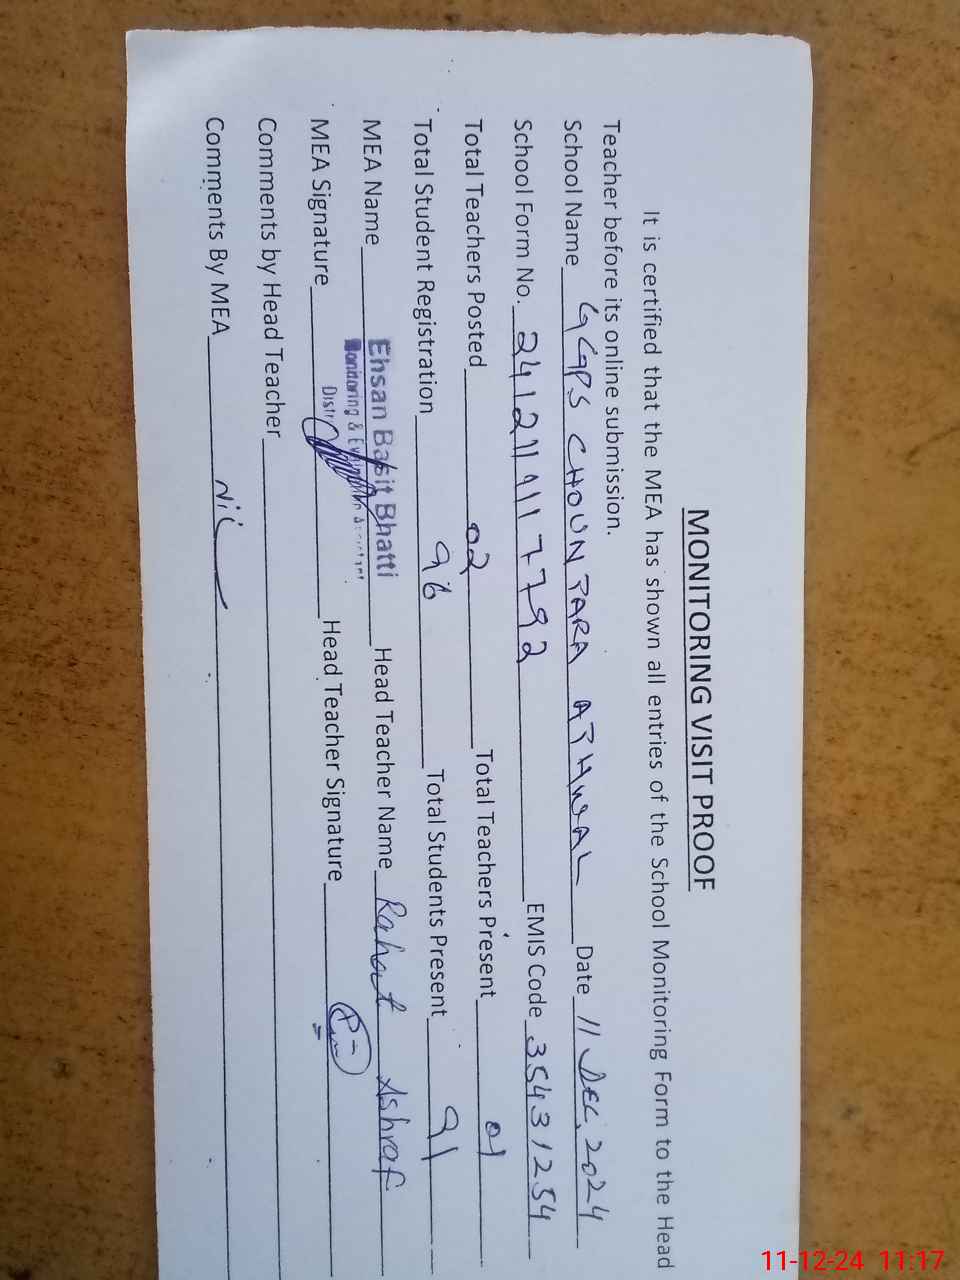 MONITORING VISIT PROOF
It is certified that the MEA has shown all entries of the School Monitoring Form to the Head
Teacher before its online submission.
School Name GGPS CHOUN PARA ATHWAL Date 11 DEC, 2024
School Form No. 2412119117792 EMIS Code 35431254
Total Teachers Posted 02 Total Teachers Present 01
Total Student Registration 96 Total Students Present 91
MEA Name Ehsan Basit Bhatti Head Teacher Name Rahat Ashraf
Monitoring & Evaluation Assistant
Distr
MEA Signature Head Teacher Signature
Comments by Head Teacher
Comments By MEA Nil
11-12-24 11:17